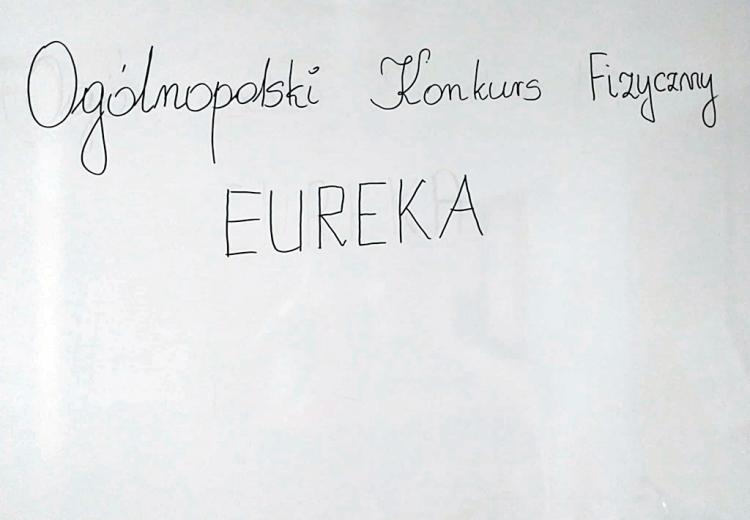 Ogólnopolski Konkurs Fizyczny
EUREKA